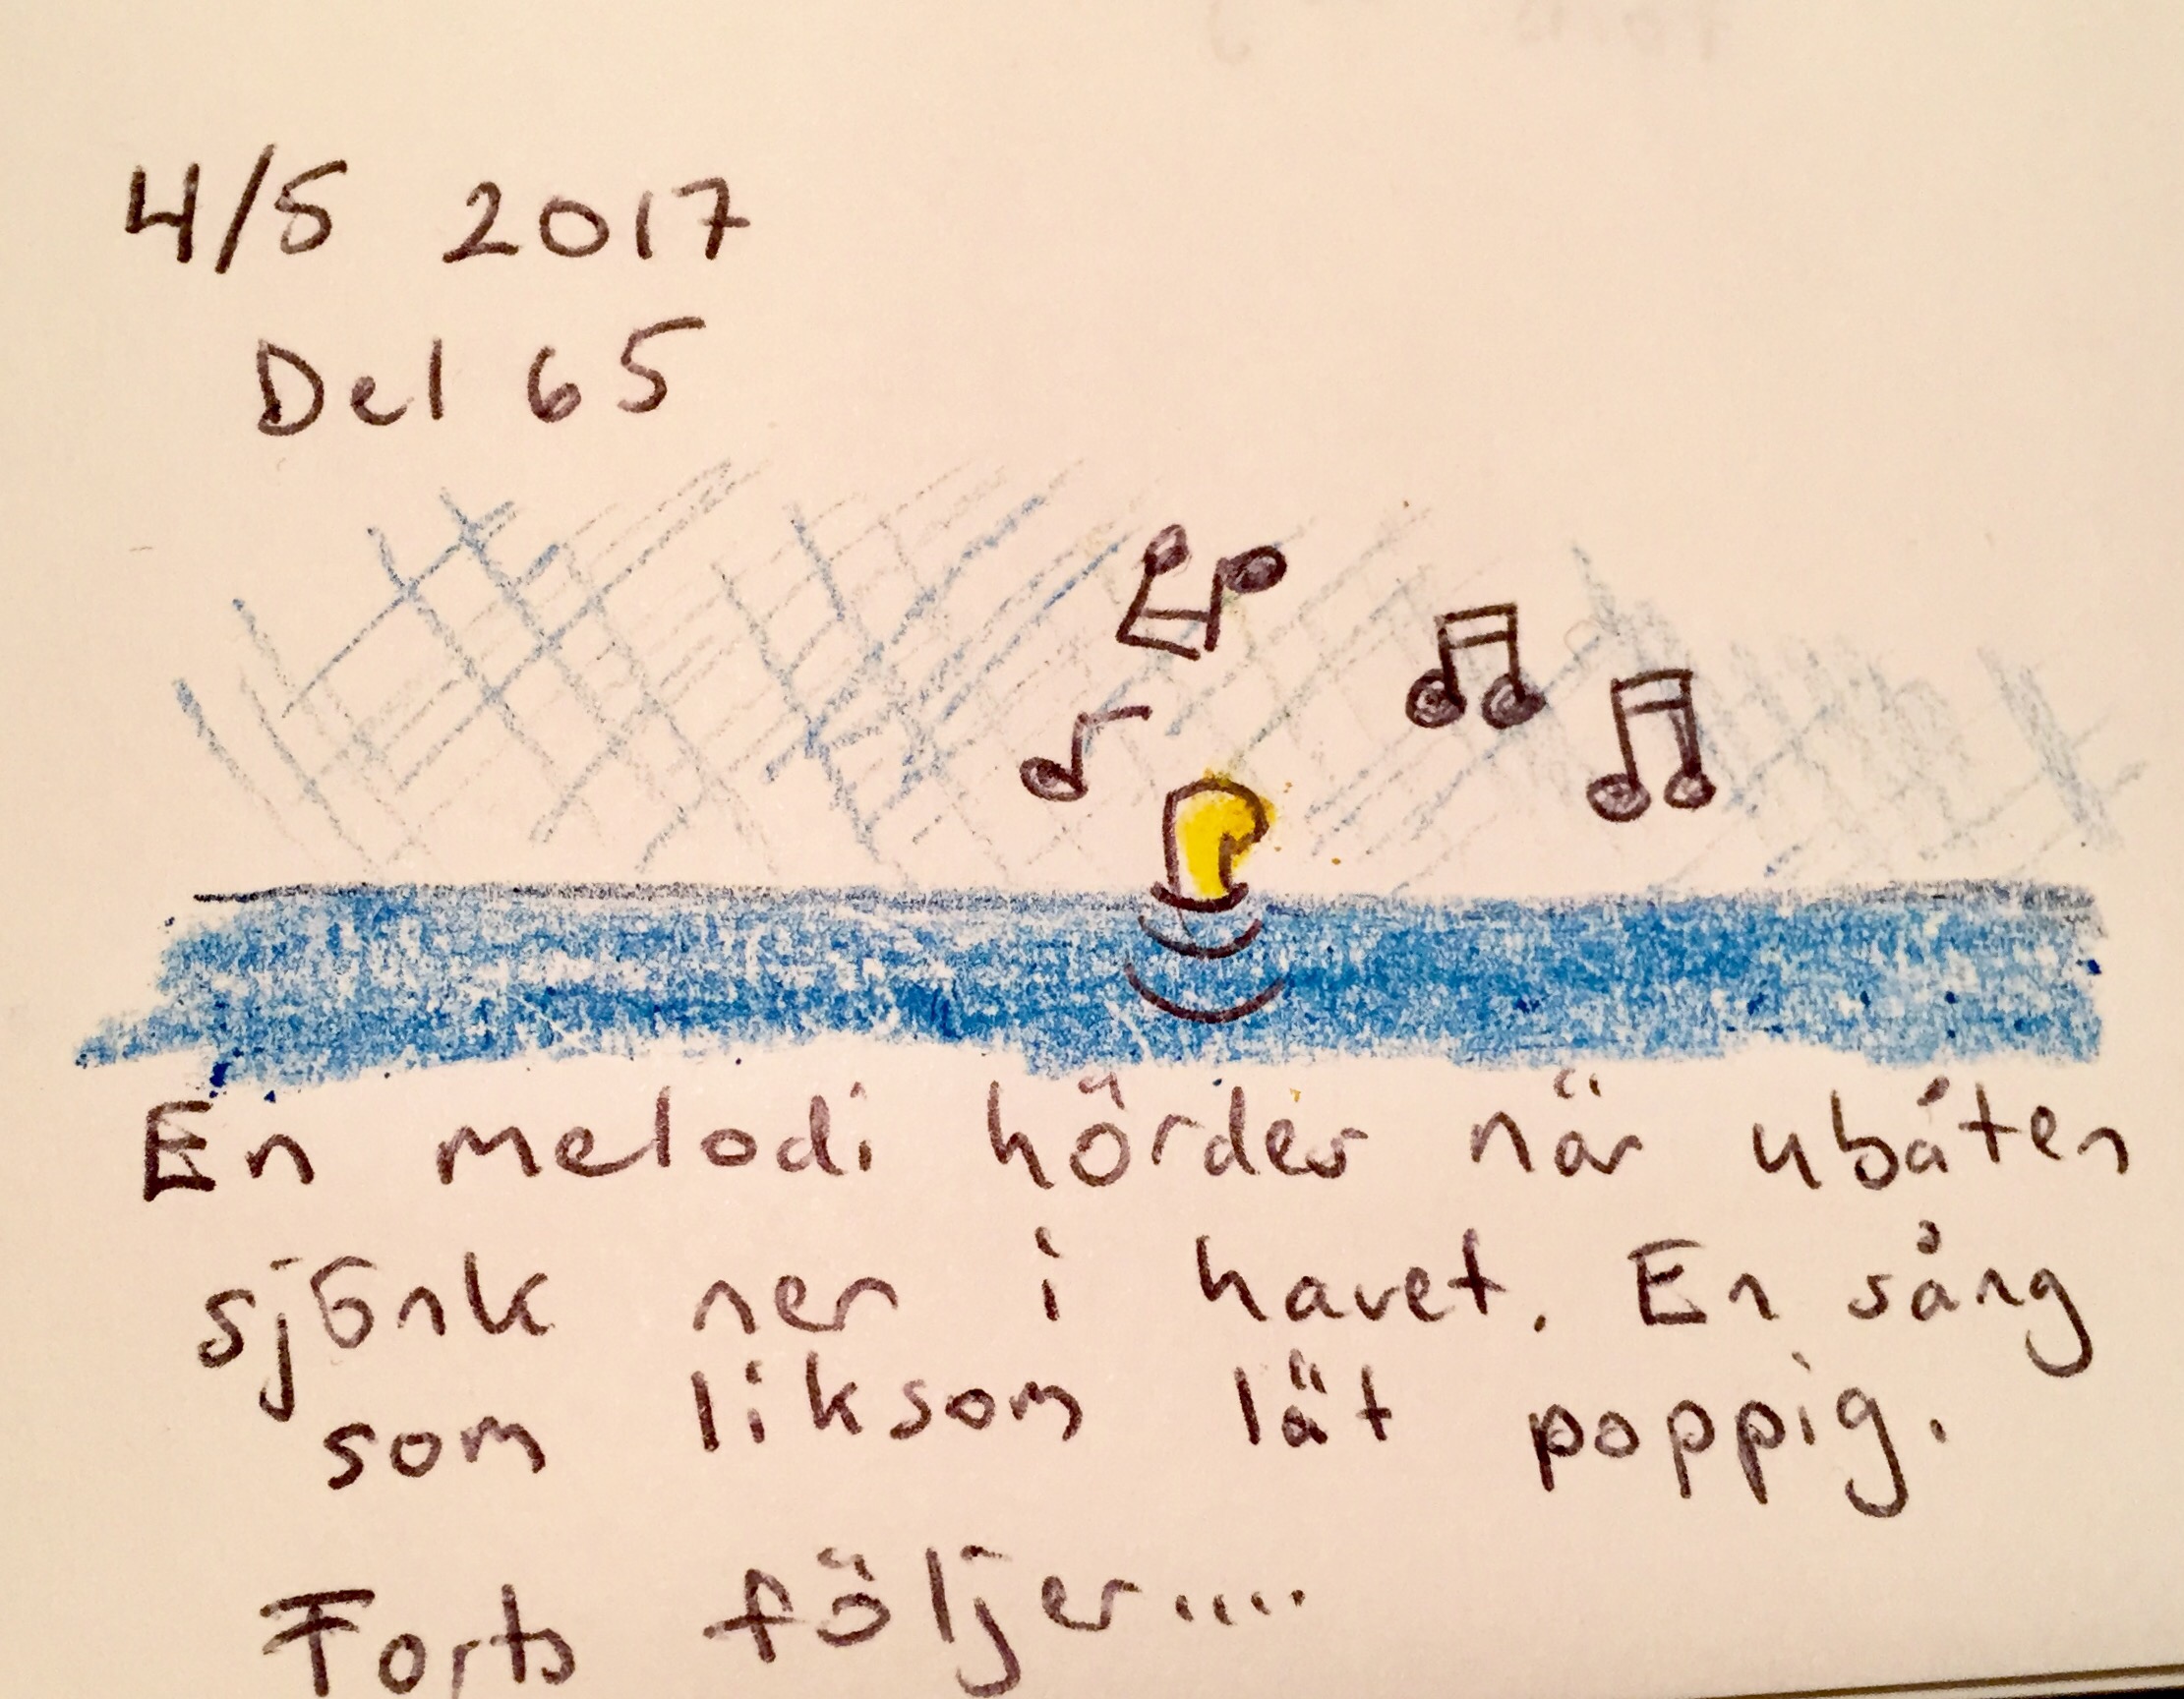 4/5 2017
Del 65
En melodi hördes när ubåten
sjönk ner i havet. En sång
som liksom lät poppig.
Forts följer....